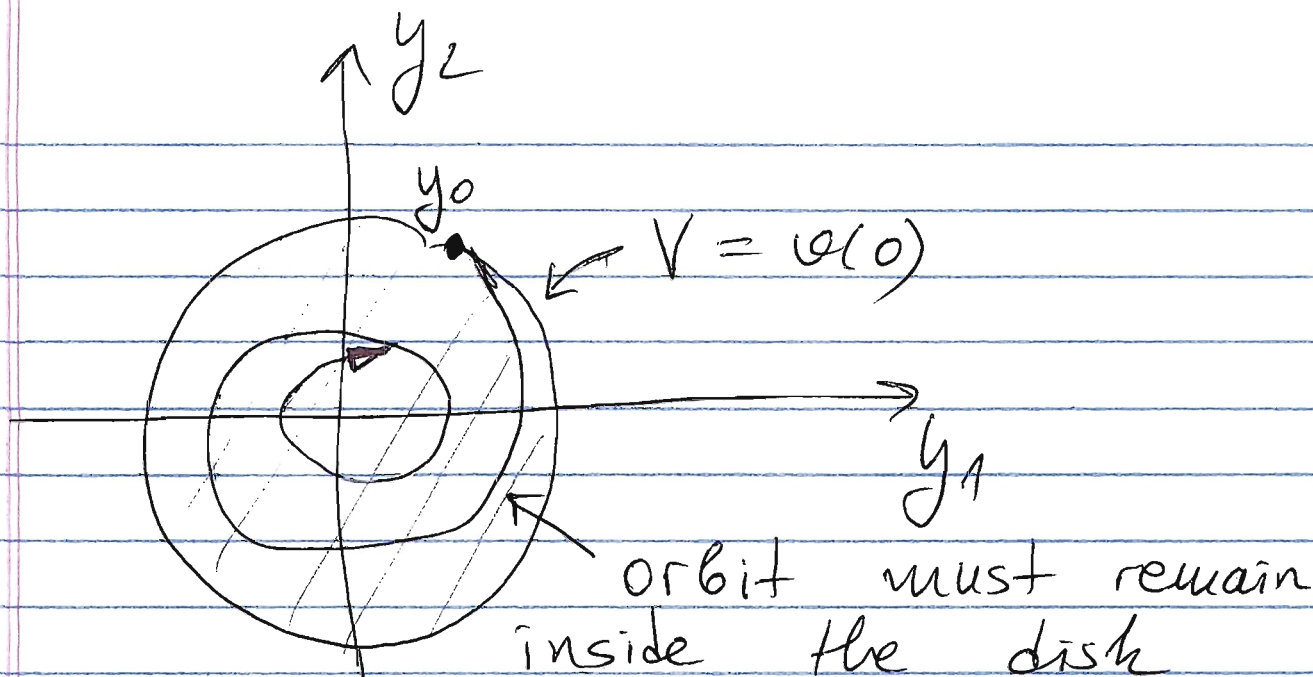 y₂
y₀
V = v(0)
y₁
orbit must remain
inside the disk